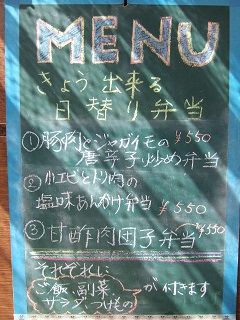 MENU
きょう出来る
日替り弁当
①豚肉とジャガイモの ¥550
唐辛子炒め弁当
②小エビと卜リ肉の
塩味あんかけ弁当 ¥550
③甘酢肉団子弁当 ¥550
それぞれに
ご飯、副菜
サラダ、つけもの が付きます